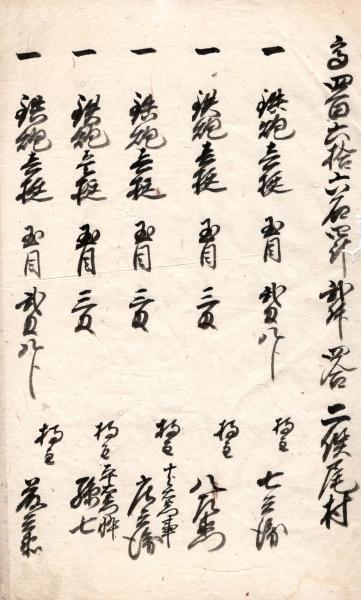 高四百六拾六石四斗弐升四合 二俣尾村
一 鉄炮壱挺 玉目 弐匁八分 持主 七兵衛
一 鉄炮壱挺 玉目 三匁 持主 八左衛門
一 鉄炮壱挺 玉目 三匁 持主 事 庄兵衛
一 鉄炮壱挺 玉目 三匁 持主 忰 孫七
一 鉄炮壱挺 玉目 弐匁八分 持主